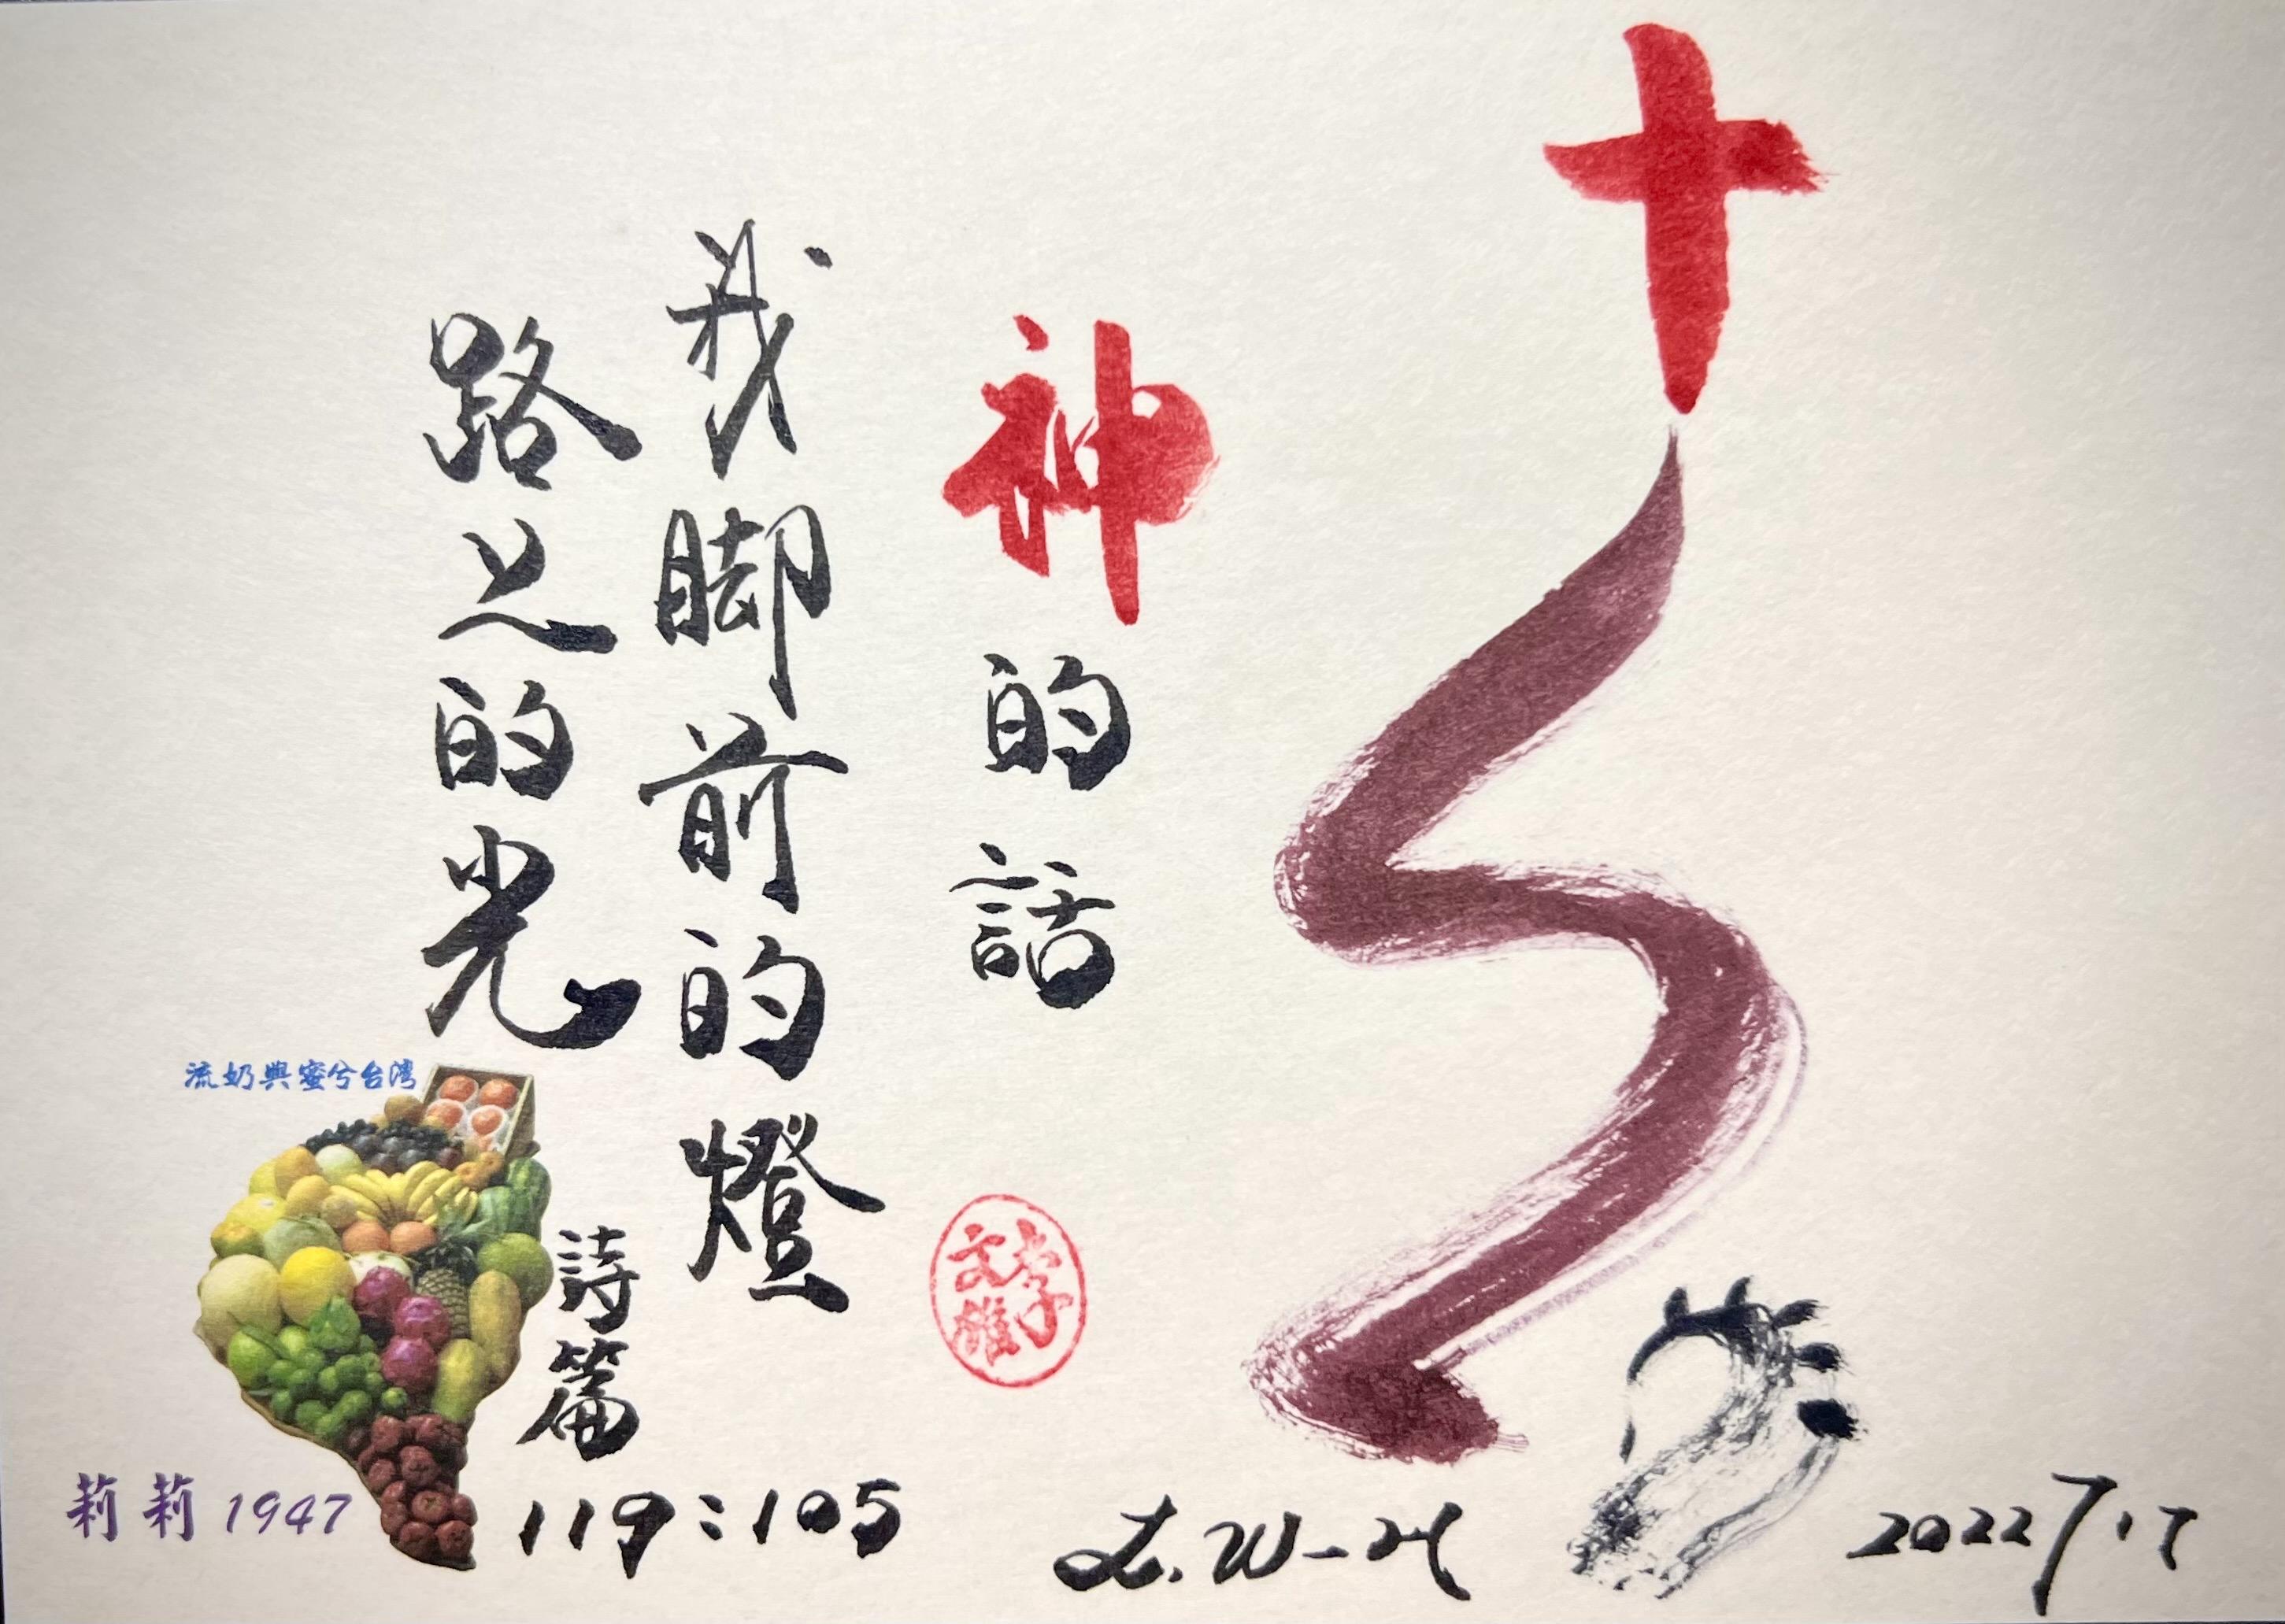 神的話
我脚前的燈
路上的光
詩篇
119:105
李文雄
流奶與蜜兮台灣
莉莉1947
L.W-H
2022 7.17